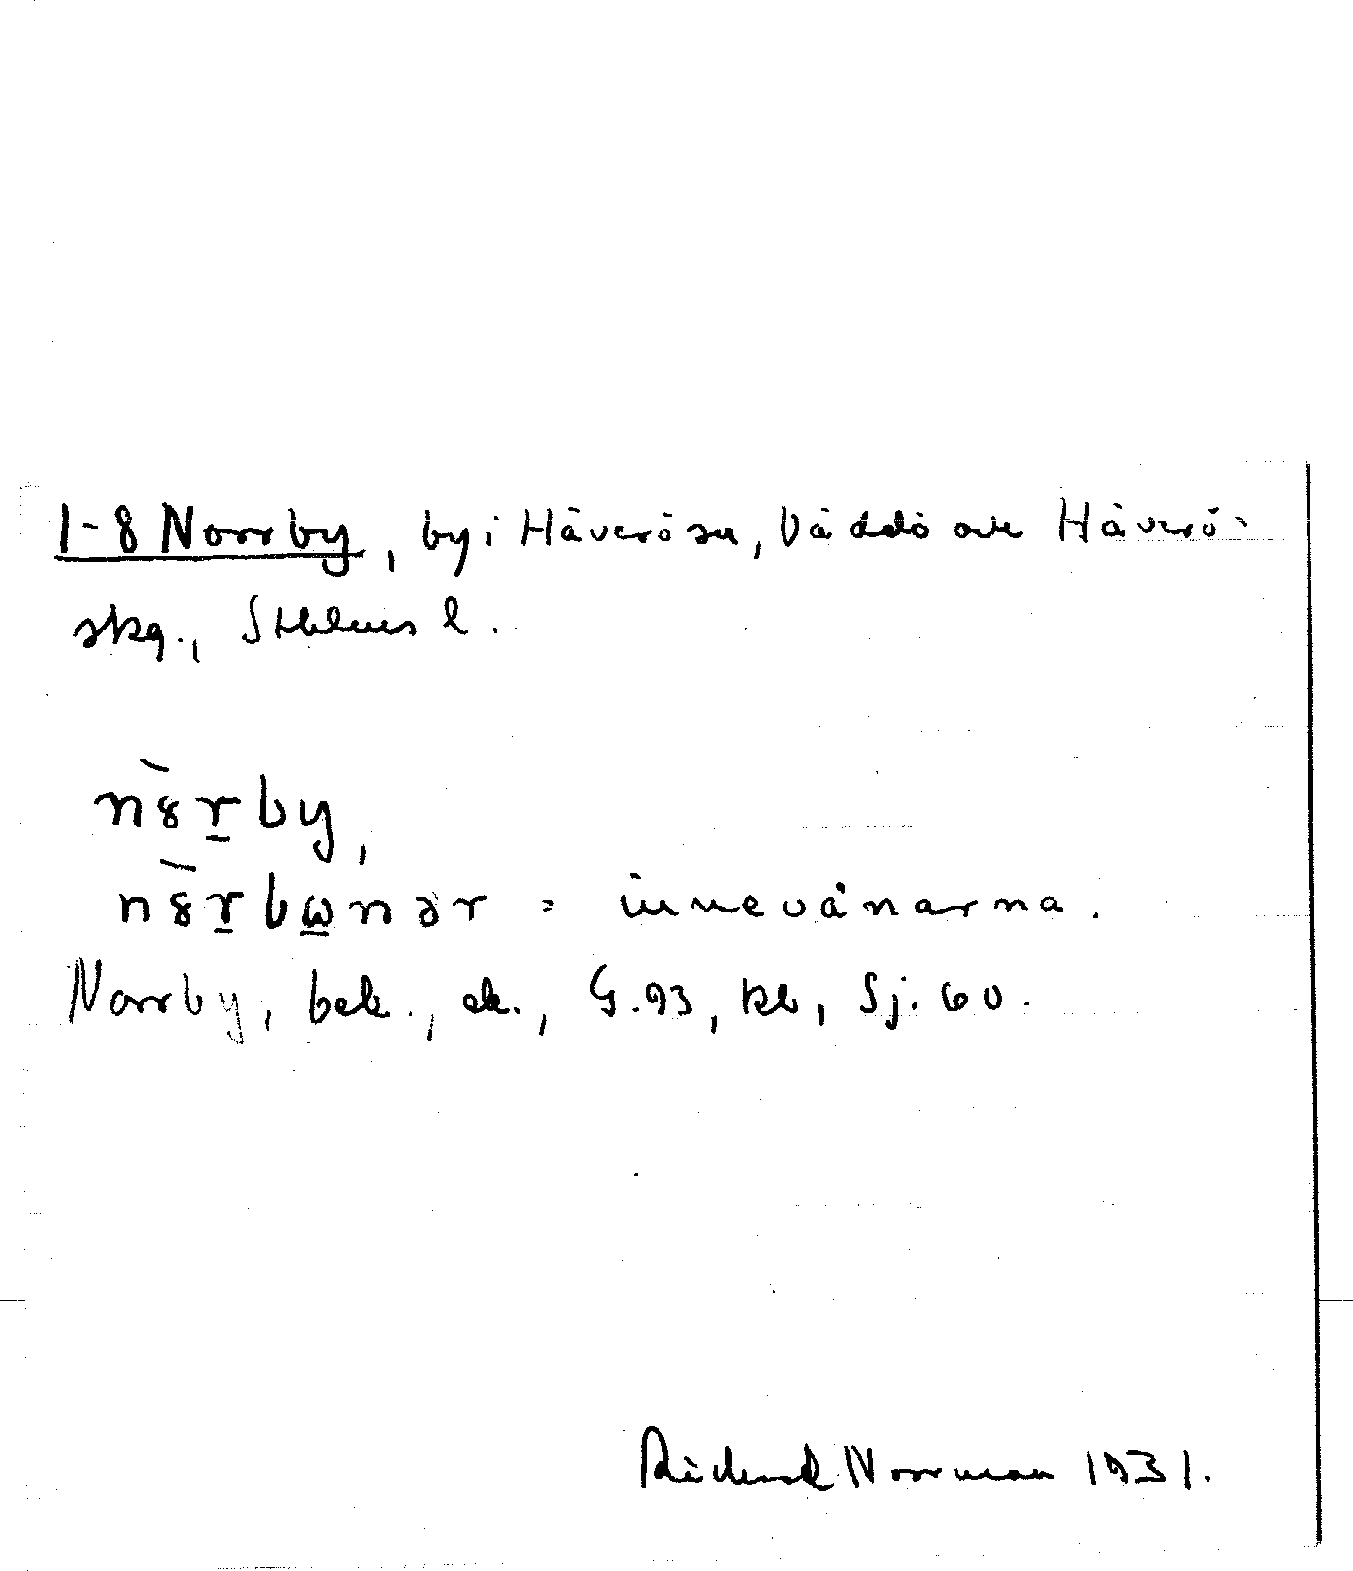 1-8 Norrby, by i Häverö sn, Väddö och Häverö
skg., Sthlms l.
nȣ̀r̲by,
nȣ̀r̲bω̲nər = innevånarna.
Norrby, bek., ek., G.93, kb, Sj. 60.
Rickard Norrman 1931.